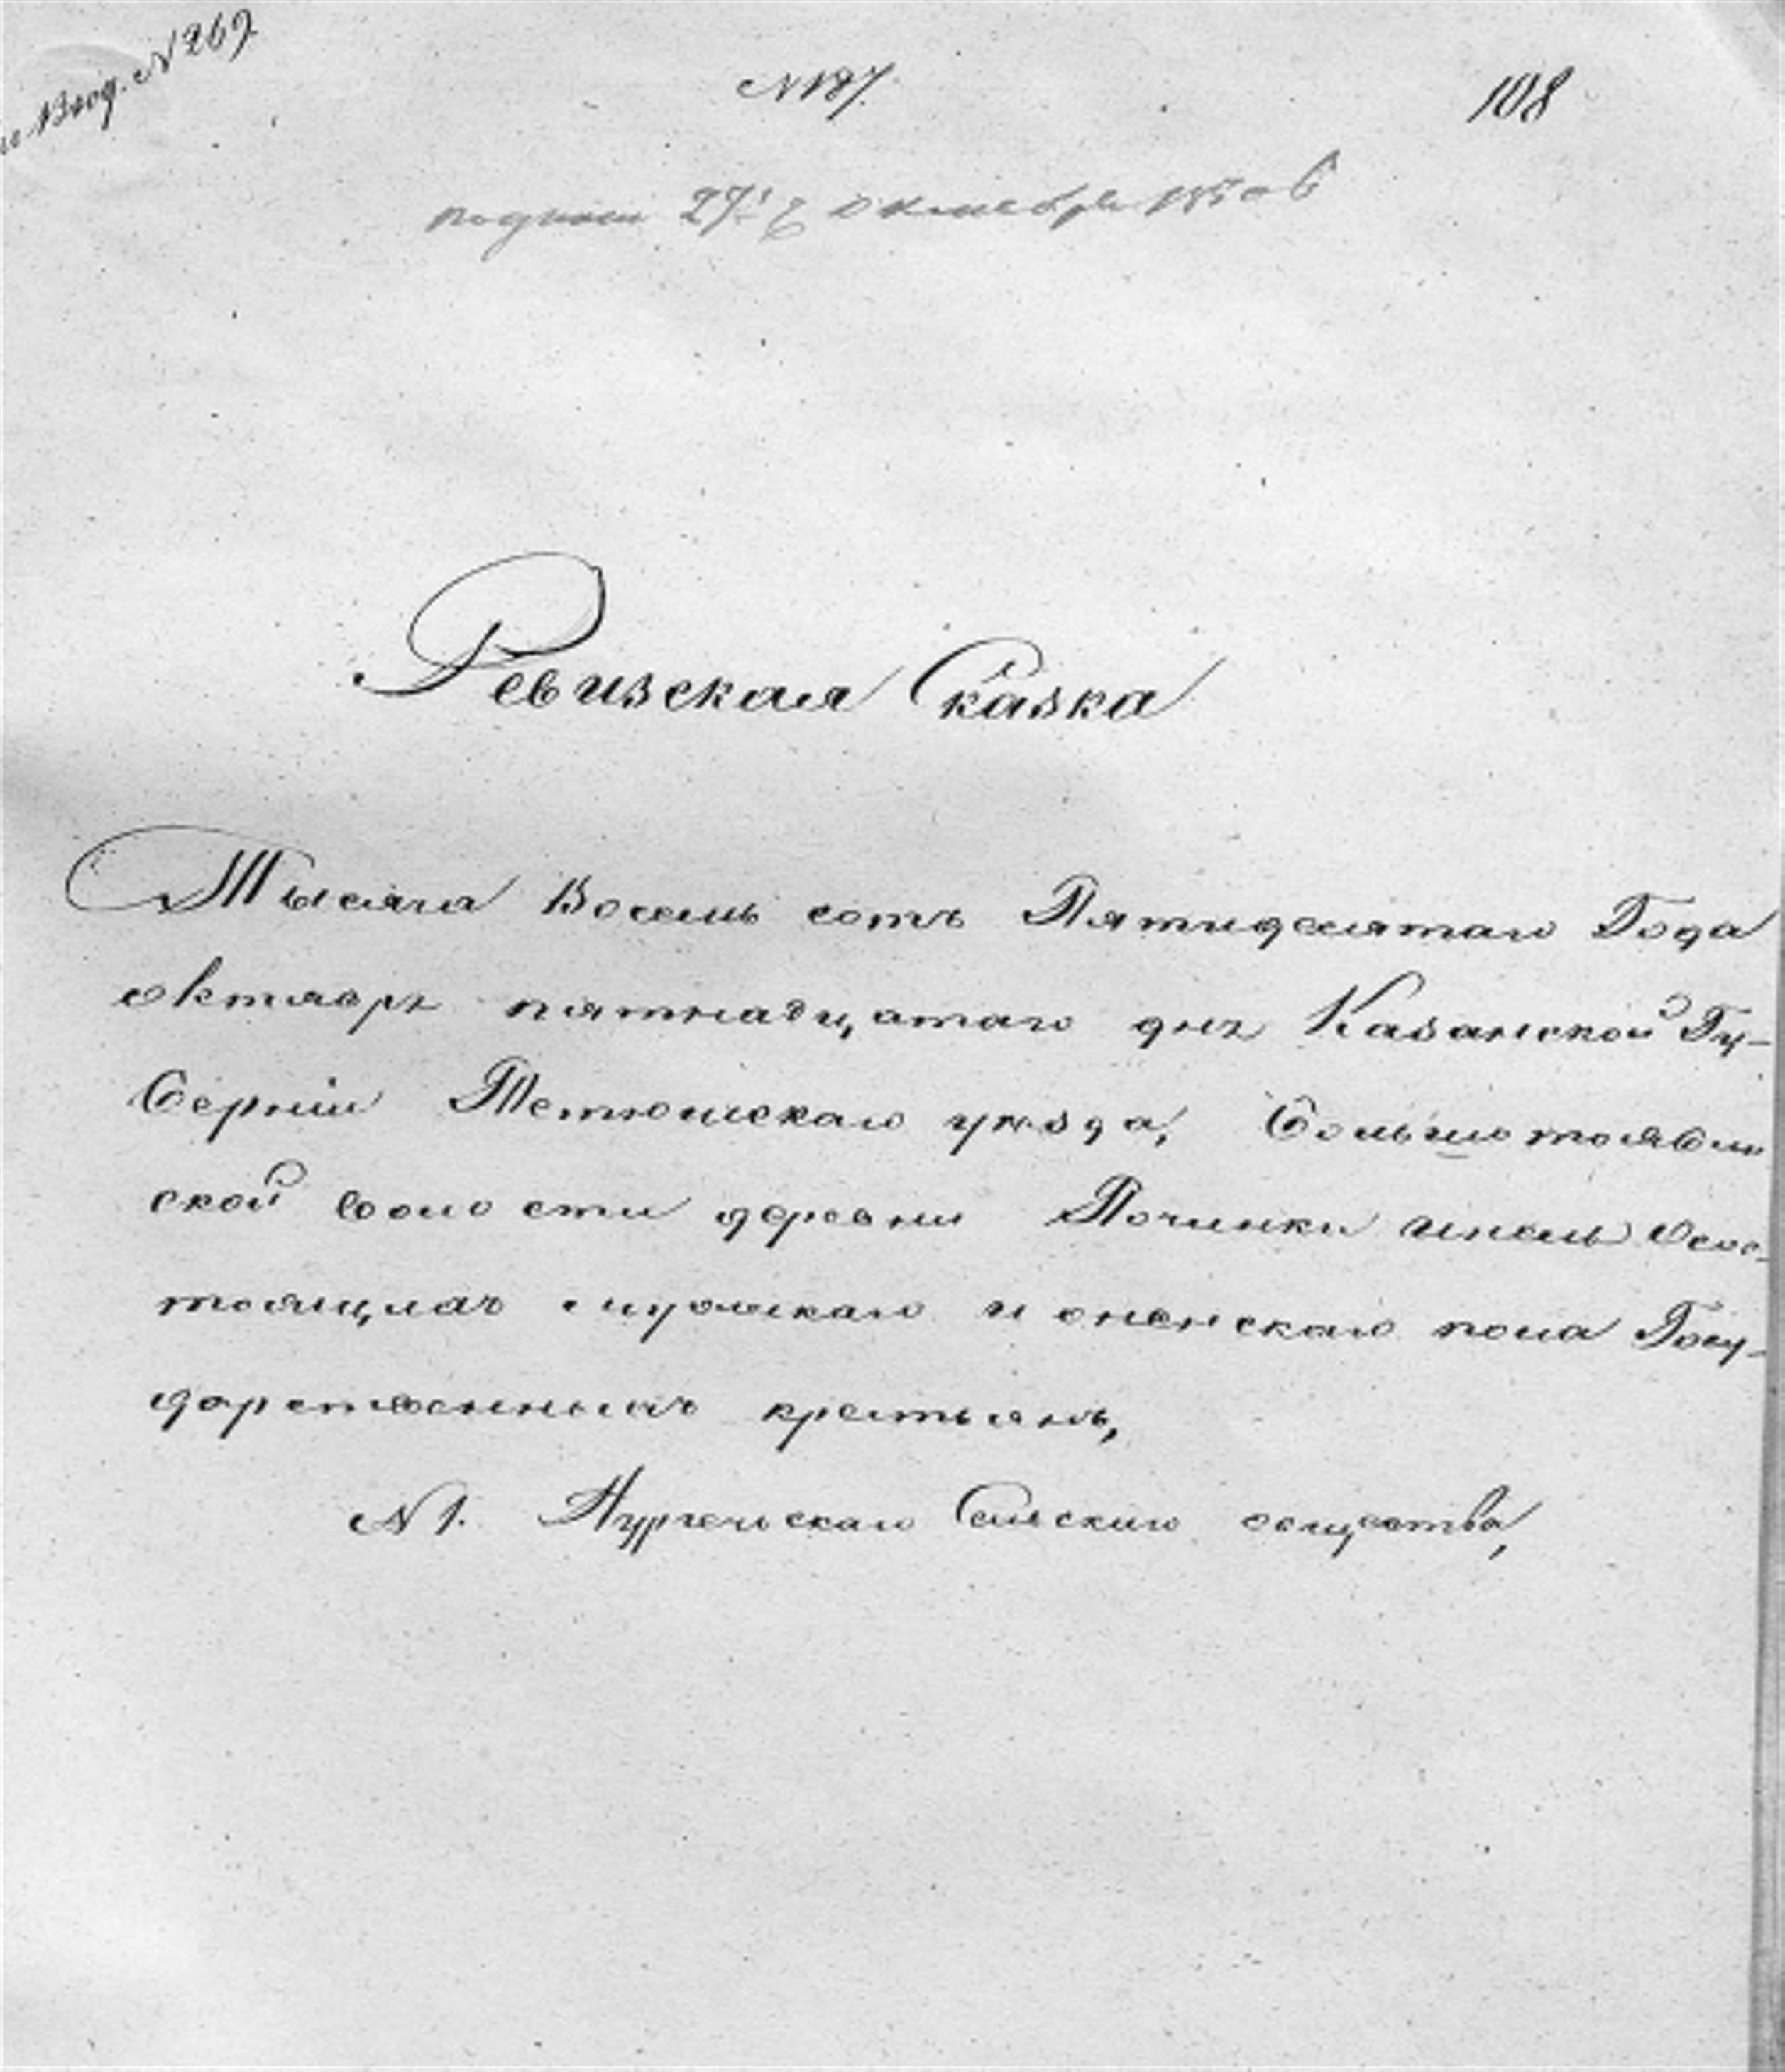 Вход. №269
№187.
108
27 Октября 1850
Ревизская Сказка
Тысяча Восемь сотъ Пятидесятаго Года
октября пятнадцатаго дня Казанской Гу-
берніи Тетюшскаго уѣзда,
ской волости деревни Починки
мужескаго и женскаго пола Госу-
дарственныхъ крестьянъ,
№1. Сельскаго общества,